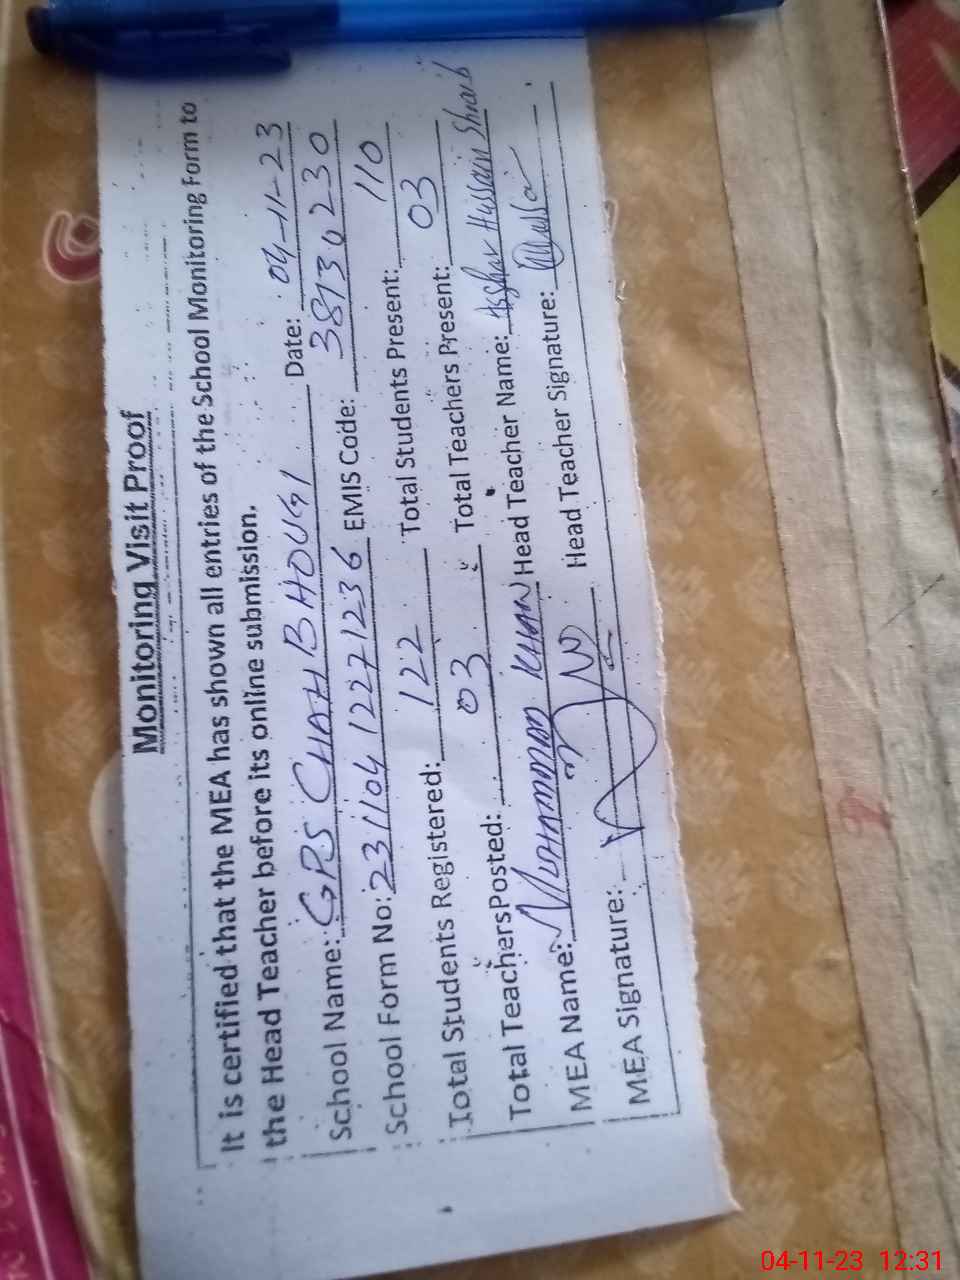 Monitoring Visit Proof
It is certified that the MEA has shown all entries of the School Monitoring Form to
the Head Teacher before its online submission.
School Name: GPS CHAH BHOUGI Date: 04-11-23
School Form No: 231104 1227 1236 EMIS Code: 38130230
Total Students Registered: 122 Total Students Present: 110
Total Teachers Posted: 03 Total Teachers Present: 03
MEA Name: MUHAMMAD KHAN Head Teacher Name: Asghar Hussain Shoaib
MEA Signature: Head Teacher Signature:
04-11-23 12:31